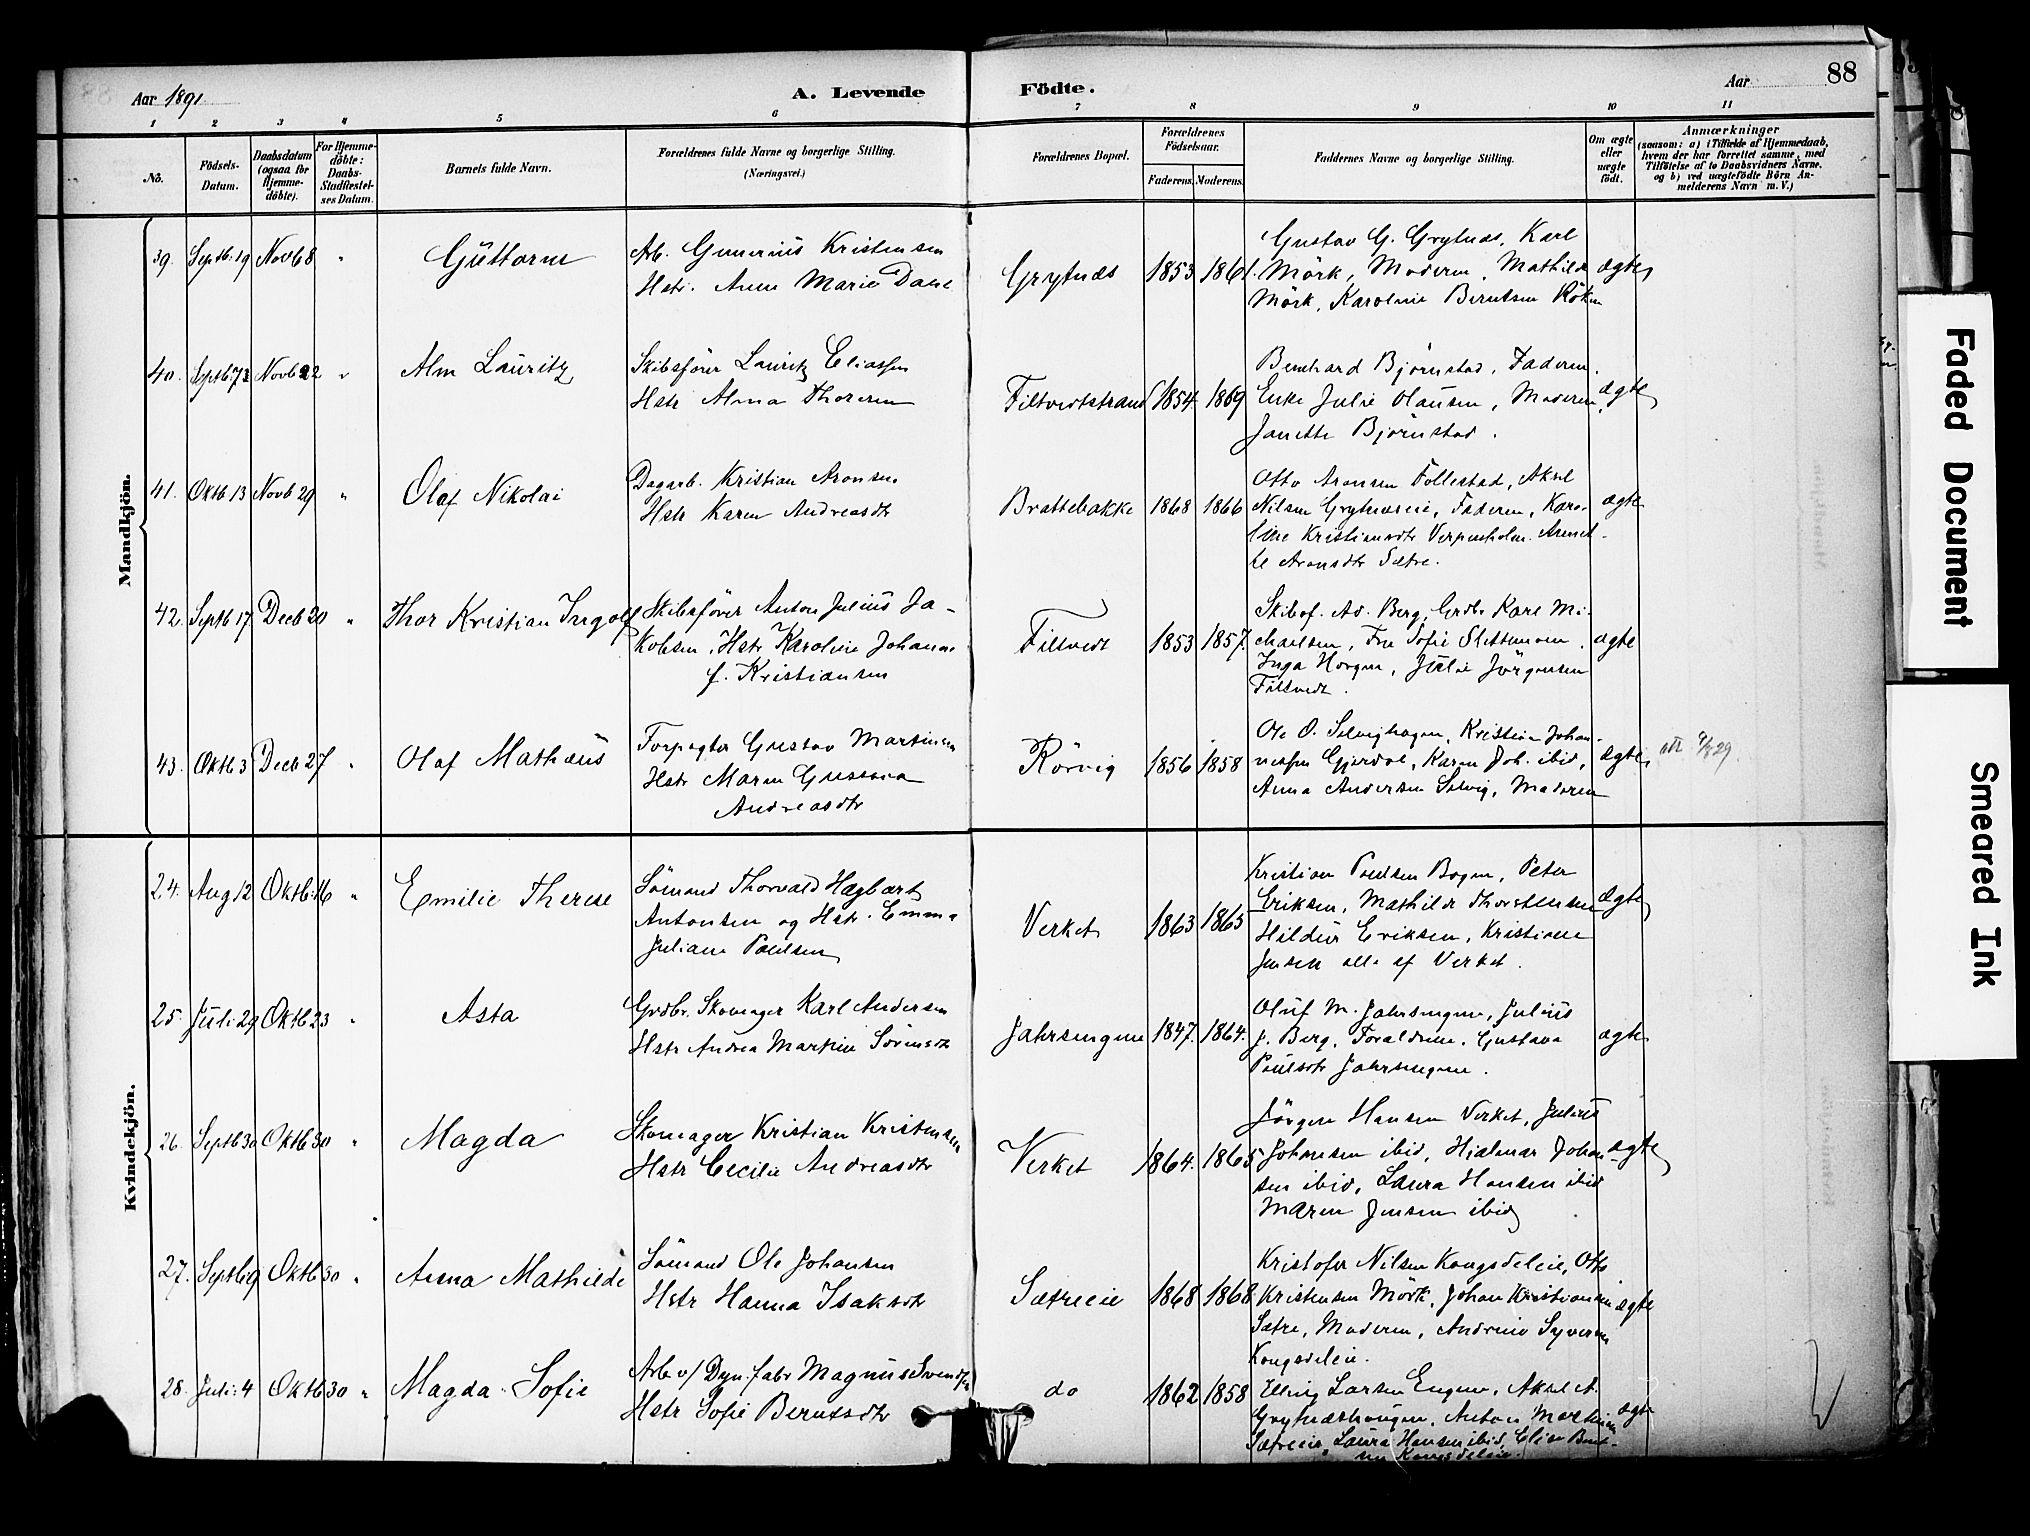 Aar 1891
A. Levende
Födte.
Aar
88
1 2 3 4 5 6 7 8 9 10 11
No.
Födsels-
Datum.
Daabsdatum
(ogsaa for
Hjemme-
döbte).
For Hjemme-
döbte:
Daabs-
Stadfæstel-
ses Datum.
Barnets fulde Navn.
Forældrenes fulde Navne og borgerlige Stilling.
(Næringsvei.)
Forældrenes Bopæl.
Forældrenes
Födselsaar.
Faderens. Moderens.
Faddernes Navne og borgerlige Stilling.
Om ægte
eller
uægte
födt.
Anmærkninger
(saasom: a) i Tilfælde af Hjemmedaab,
hvem der har forrettet samme, med
Tilföielse af to Daabsvidners Navne.
og b) ved uægtefödte Börn An-
melderens Navn m. V.)
Mandkjön.
39. Septb. 19 Novb 8 " Guttorm
Arb. Gunerius Kristensen
Hstr. Anne Marie
Grytnæs 1853 1861.
Gustav G. Grytnæs, Karl
Mörk, Moderen, Mathilde
Mörk, Karoline Berntsen
ægte
40. Novb 22 " Alm Lauritz
Skibsförer Lauritz Eliassen
Hstr Alma Thoresen
Filtvedtstrand 1854. 1869
Bernhard Björnstad, Faderen.
Enke Julie Olausen, Moderen,
Janette Björnstad.
ægte
41. Oktb 13 Novb 29 " Olaf Nikolai
Dagarb. Kristian Aronsen
Hstr Karen Andreasdtr
Brattebakke 1868 1866
Otto Aronsen Follestad, Aksel
Nilsen Grytnæseie, Faderen, Karo-
line Kristiansdtr Verpenholm. Annet-
te Aronsdtr Sætre.
ægte
42. Septb 17 Decb 20 " Thor Kristian Ingolf
Skibsförer Anton Julius Ja-
kobsen, Hstr Karoline Johanne
f. Kristiansen
Filtvedt 1853 1857.
Skibsf. Ad. Berg, Grdbr Karl Mi-
chaelsen, Fru Sofie Slettemoen,
Inga Horgen, Julie Jörgensen
Filtvedt.
ægte
43. Oktb 3 Decb 27 " Olaf Mathæus
Forpagter Gustav Martinsen
Hstr Maren Gustava
Andreasdtr
Rörvig 1856 1858
Ole O. Selvighagen, Kristian Johan-
nessen Gjerdal, Karen Joh. ibid,
Anna Andersen Selvig, Moderen
ægte
Kvindekjön.
24. Aug 12 Oktb. 16 " Emilie Therese
Sömand Thorvald Hagbart
Antonsen og Hstr. Emma
Juliane Poulsen
Verket 1863 1865
Kristian Poulsen Bogen, Peter
Eriksen, Mathilde Thorstensen
Hildur Eriksen, Kristiane
Jensen alle af Verket.
ægte
25. Juli 29 Oktb 23 " Asta
Grdbr. Skomager Karl Andersen
Hstr Andrea Martine Sörensdtr
Jahrsengene 1847. 1864.
Oluf M. Jahrsengene, Julius
J. Berg, Forældrene, Gustava
Poulsdtr Jahrsengene.
ægte
26. Septb 30 Oktb 30 " Magda
Skomager Kristian Kristensen
Hstr Cecilie Andreasdtr
Verket 1864. 1865
Jörgen Hansen Verket, Julius
Johansen ibid, Hjalmar Johan-
sen ibid, Laura Hansen ibid
Maren Jensen ibid
ægte
27. Septb 9 Oktb 30 " Anna Mathilde
Sömand Ole Johansen
Hstr Hanna Isaksdtr
Sætreeie 1868 1868
Kristofer Nilsen Kongsdeleie, Otto
Kristensen Mörk, Johan Kristiansen
Sætre, Moderen, Andrine Syversen
Kongsdeleie.
ægte
28. Juli 4 Oktb 30 " Magda Sofie
Arb v/ Dyn. fabr Magnus Svendsen
Hstr Sofie Berntsdtr
do 1862 1858
Elling Larsen Engene, Aksel A.
Grytnæshaugen, Anton Martinsen
Sætreeie, Laura Hansen ibid, Elise Bernt-
sen Kongsdeleie.
ægte
Faded Document
Smeared Ink